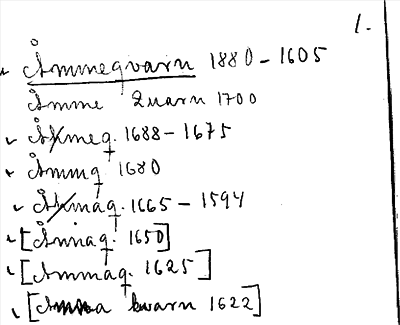 1.
Åmmeqvarn 1880 - 1605
Åmme Quarn 1700
Åkmeq. 1688 - 1675
Åmmq 1680
Åkmaq. 1665 - 1594
[Åmaq. 1650]
[Åmmaq. 1625]
[kvarn 1622]